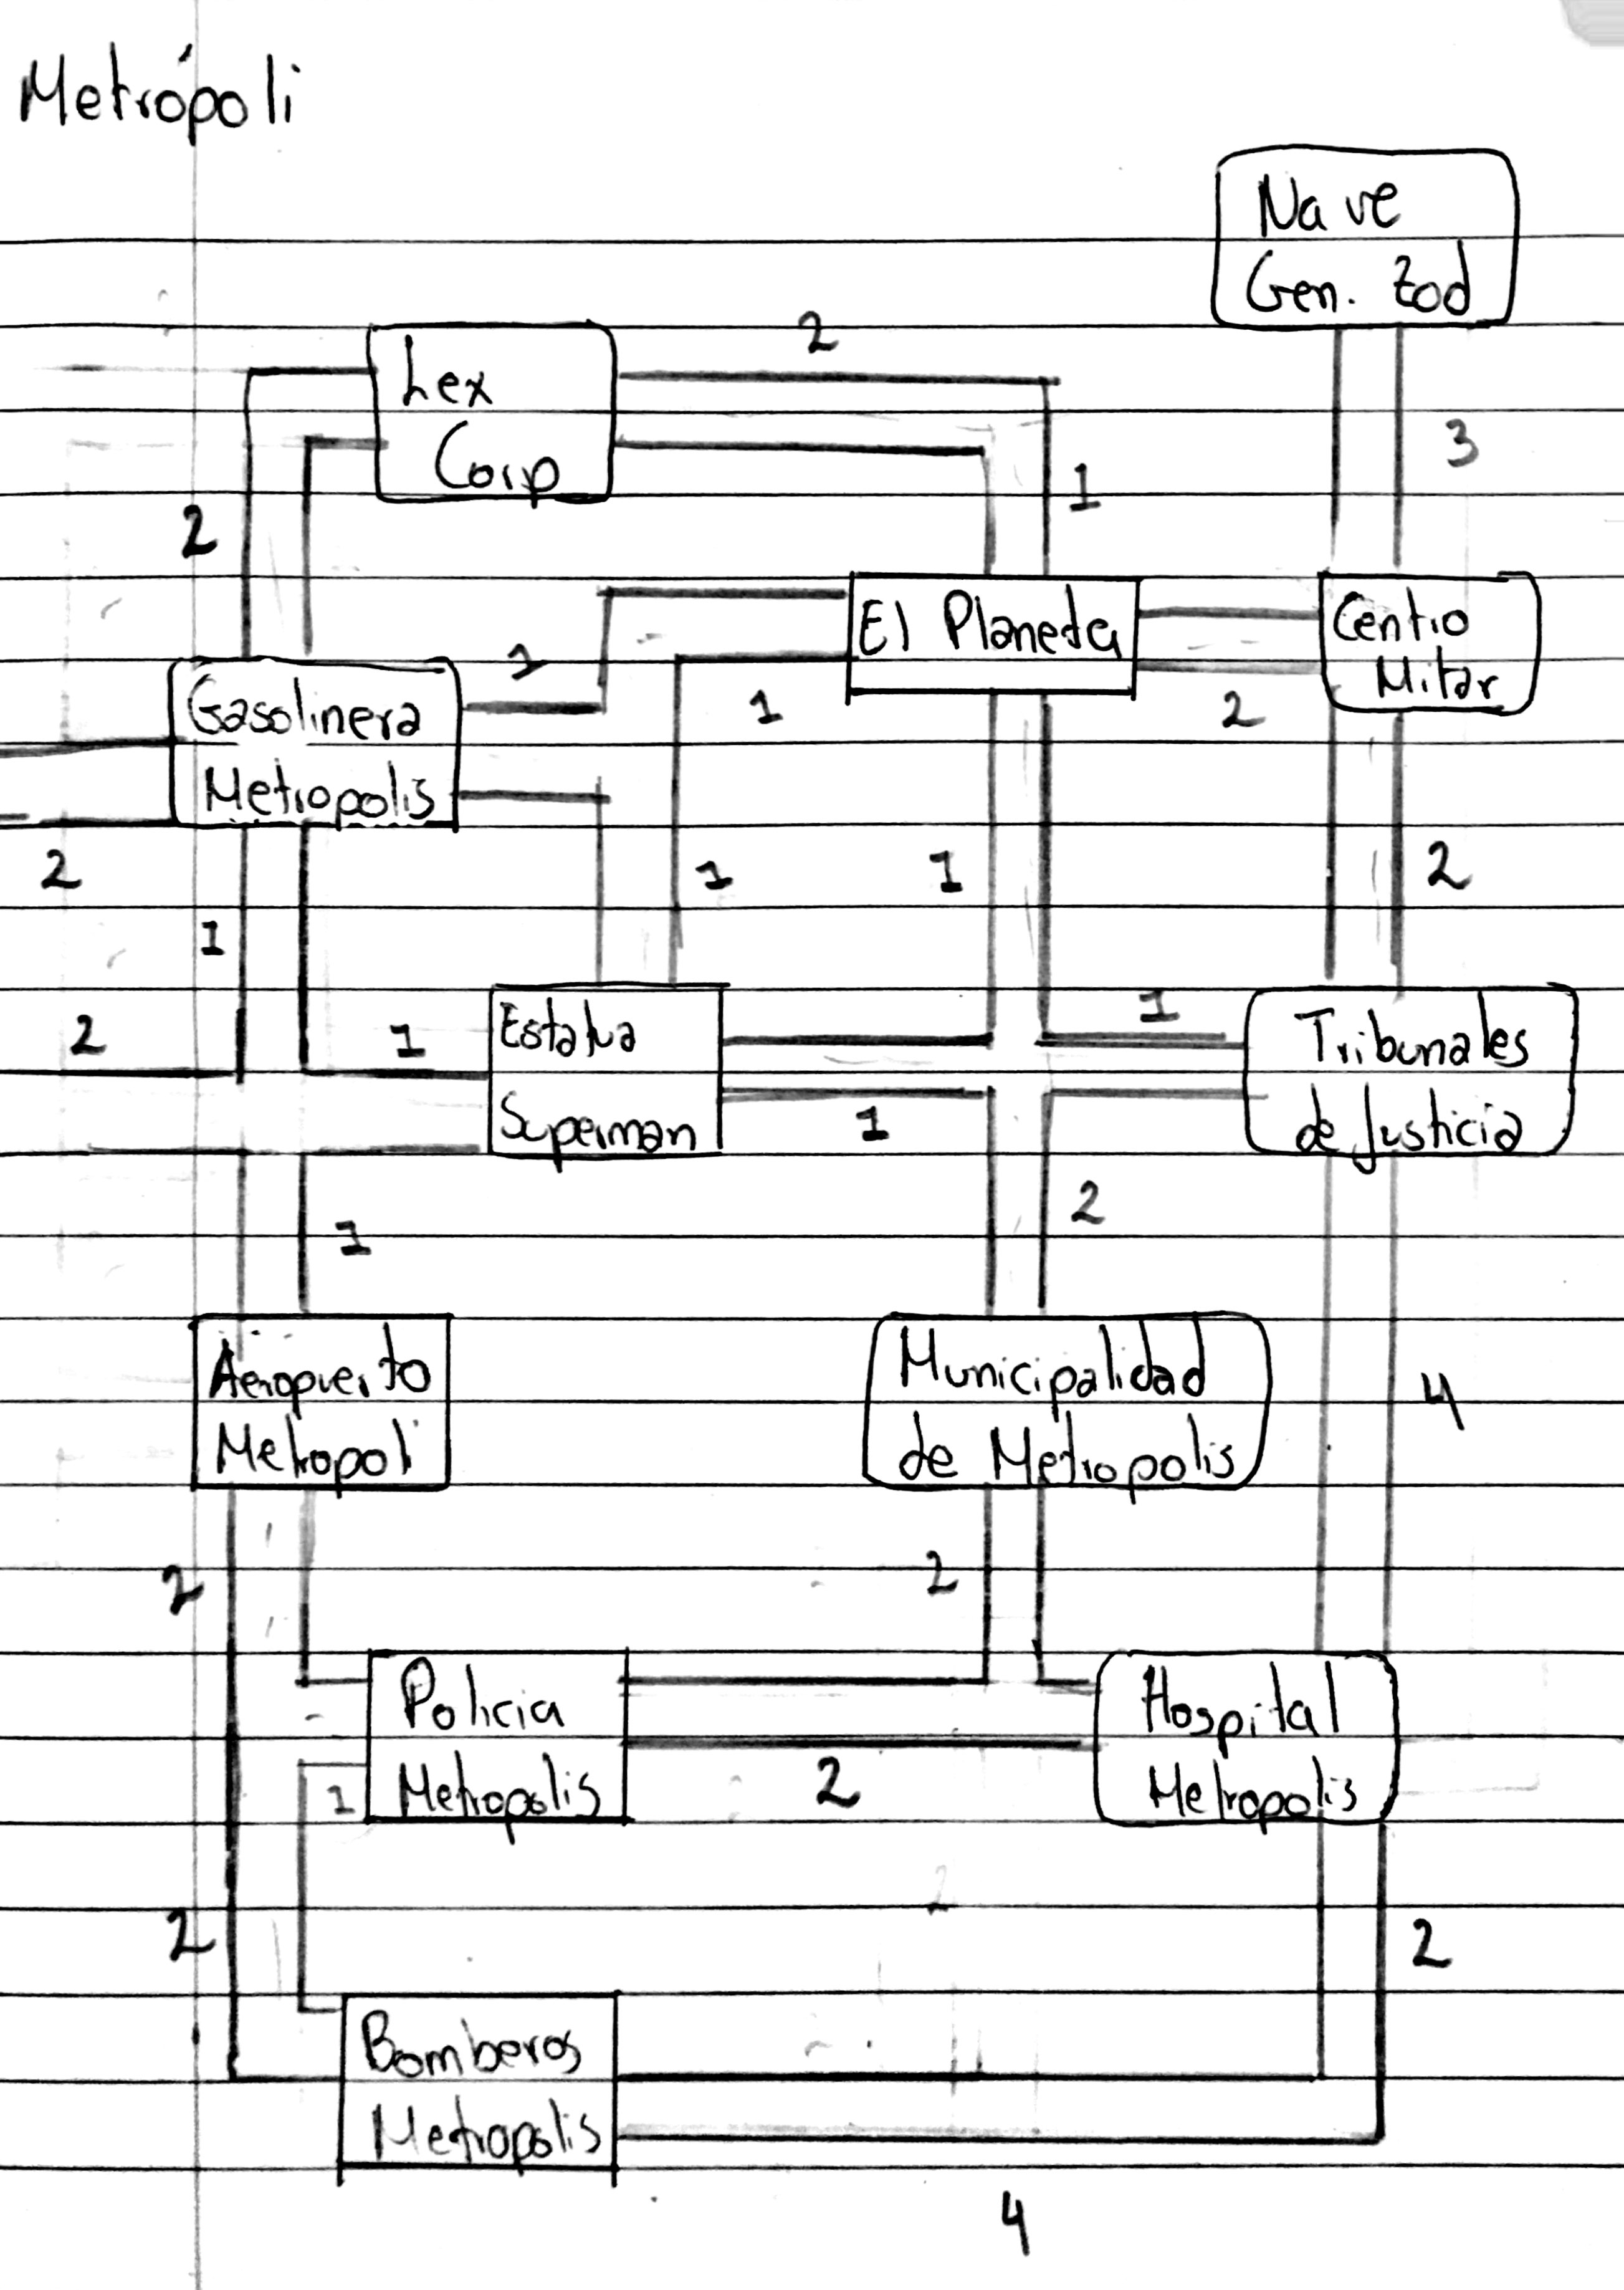 Metrópoli
Nave
Gen. Zod
2
Lex
Corp
3
1
2
El Planeta
Centro
Mitar
1
Gasolinera
1
2
Metropolis
2
1
1
2
1
1
Estatua
2
1
Tribunales
Superman
1
de Justicia
2
1
Aeropuerto
Metropoli
Municipalidad
de Metropolis
4
2
2
Policia
Metropolis
Hospital
Metropolis
1
2
2
2
Bomberos
Metropolis
4